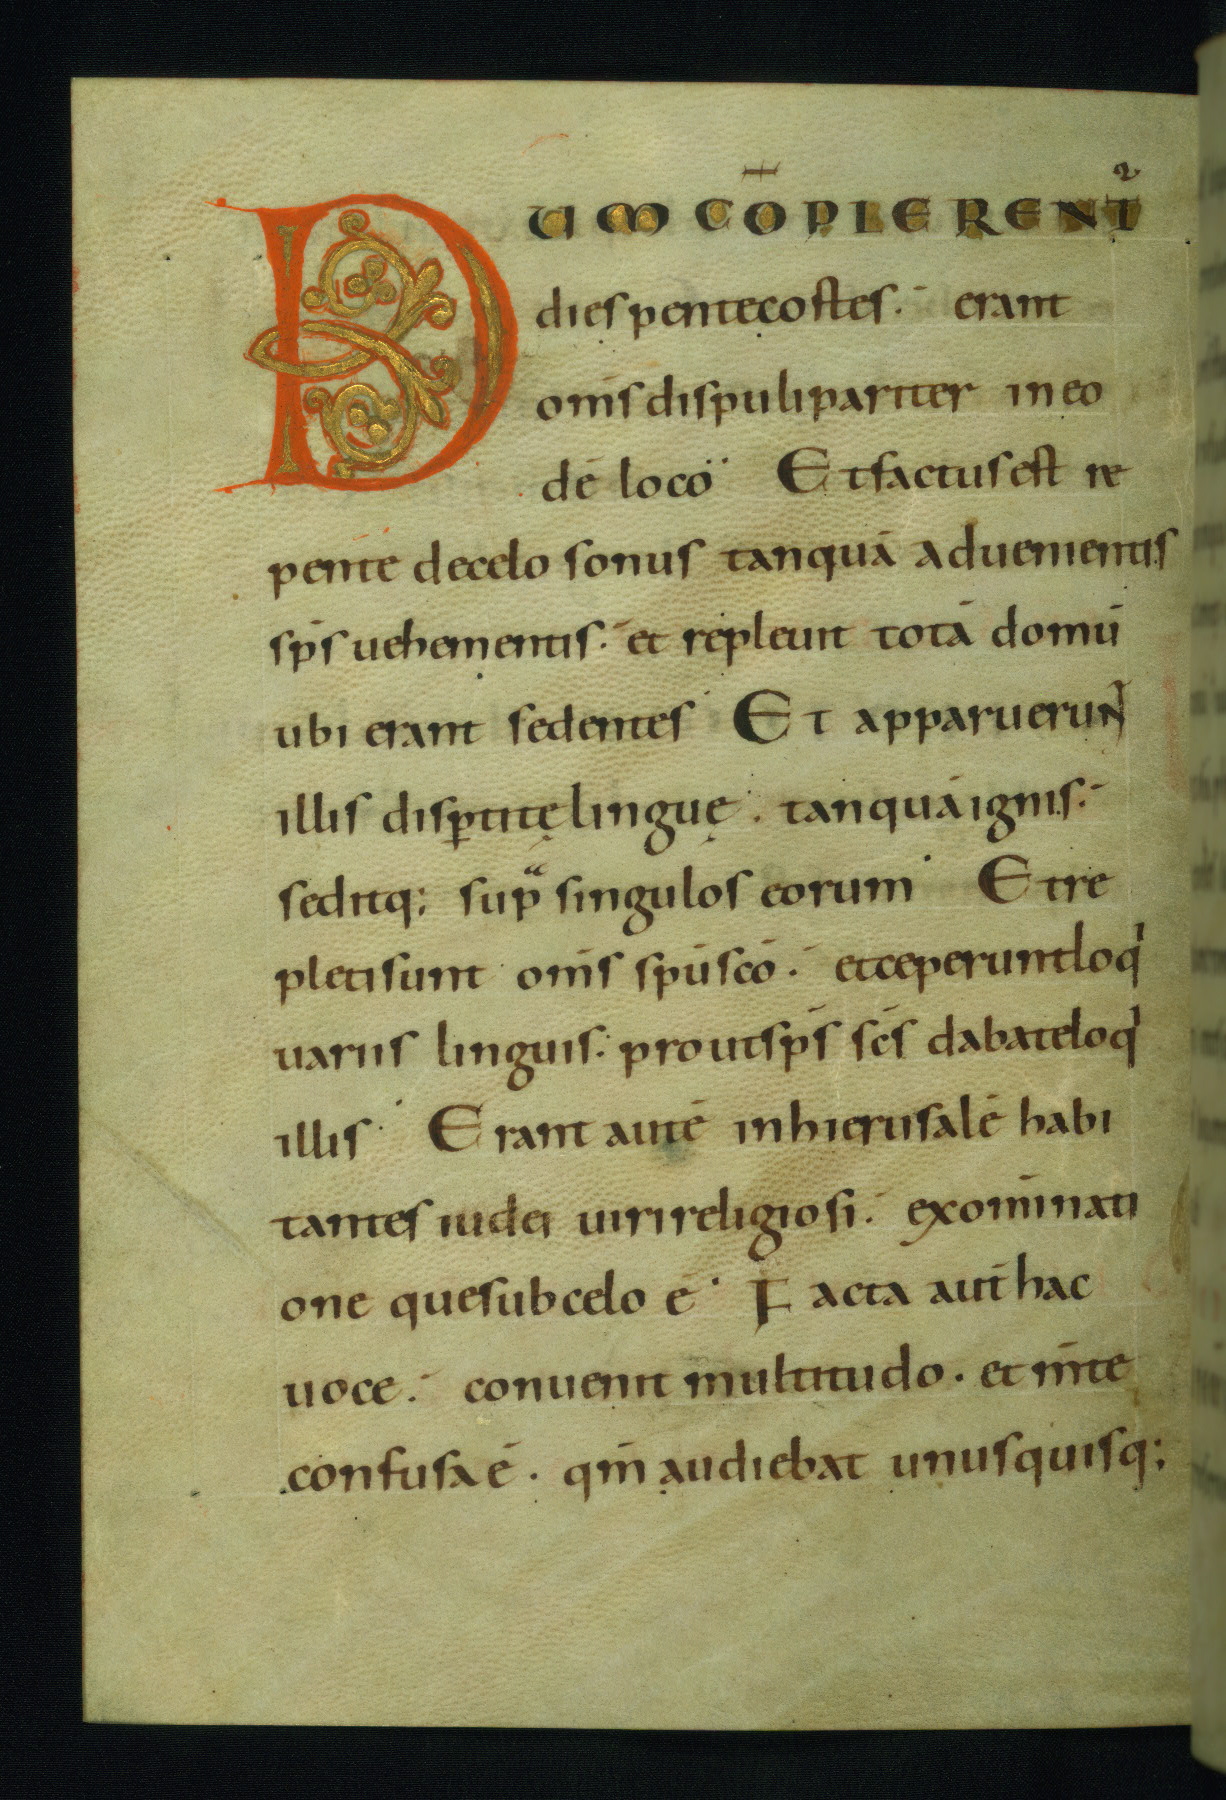 DUM CŌPLERENT᷑
dies pentecostes. erant
om̄s dispuli pariter in eo
dē loco Et factus est re
pente de celo sonus tanquā aduenientis
sp̄s uehementis. et repleuit totā domū
ubi erant sedentes Et apparuerun̄
illis disꝑtitę linguę. tanquā ignis.
seditq; sup̄ singulos eorum Et re
pleti sunt om̄s sp̄u sc̄o. et ceperunt loqͥ
uariis linguis. prout sp̄s sc̄s dabat eloqͥ
illis Erant autē in hierusalē habi
tantes iudei uiri religiosi. ex om̄i nati
one que sub celo ē Facta aut̄ hac
uoce. conuenit multitudo. et m̄te
confusa ē. qm̄ audiebat unusquisq;